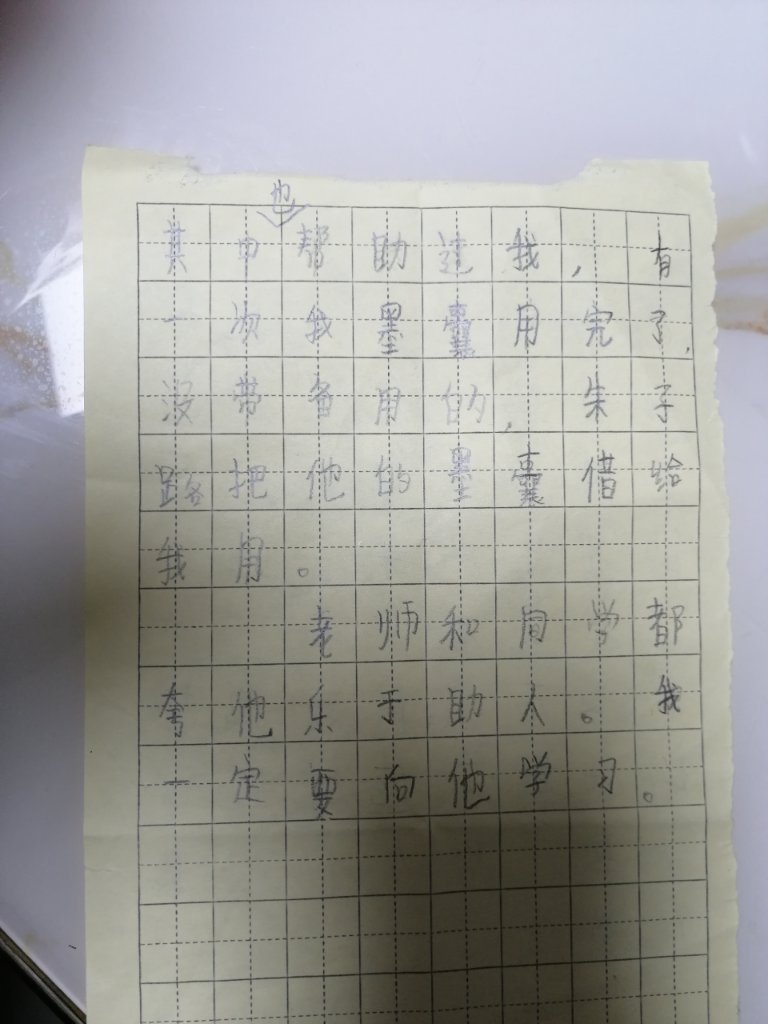 其中也帮助过我，有
一次我墨囊用完了，
没带备用的，朱子
路把他的墨囊借给
我用。
老师和同学都
夸他乐于助人。我
一定要向他学习。